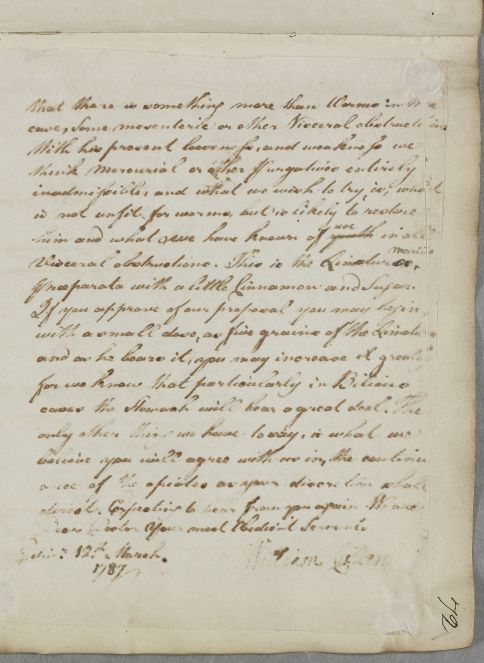 that there is something more than Worms in the
case, some mesenteric or other Visceral obstruction
With his present lowness, and weakness we
think Mercurial or other Purgatives entirely
inadmissible, and what we wish to try, is, what
is not unfit for worms, but is likely to restore
him and what we have known of use in all
Visceral obstructions. This is the Limatura martis
Præparata with a little Cinnamon and Sugar.
If you approve of our proposal you may begin
with a small dose, as five grains of the Limatu
and as he bears it, you may increase it greatly
for we know that particularly in Bilious
cases the Stomach will bear a great deal. The
only other thing we have to say, is what we
believe you will agree with us in, the continu
ance of the opiates as your discretion shall
direct. Expecting to hear from you again We are
Dear Doctor Your most Obedient Servants
Edinr. 12th March
1787
William Cullen
79